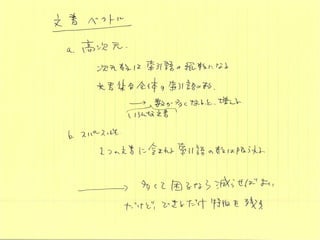 文書ベクトル
a. 高次元.
次元数は索引語の総数になる
文書集合全体の索引語の数.
→ 数が多くなると、増える
いろんな文書
b. スパース性
1つの文書に含まれる索引語の数は限られる
→ 多くて困るなら減らせばよい
だけど、できるだけ特徴を残す